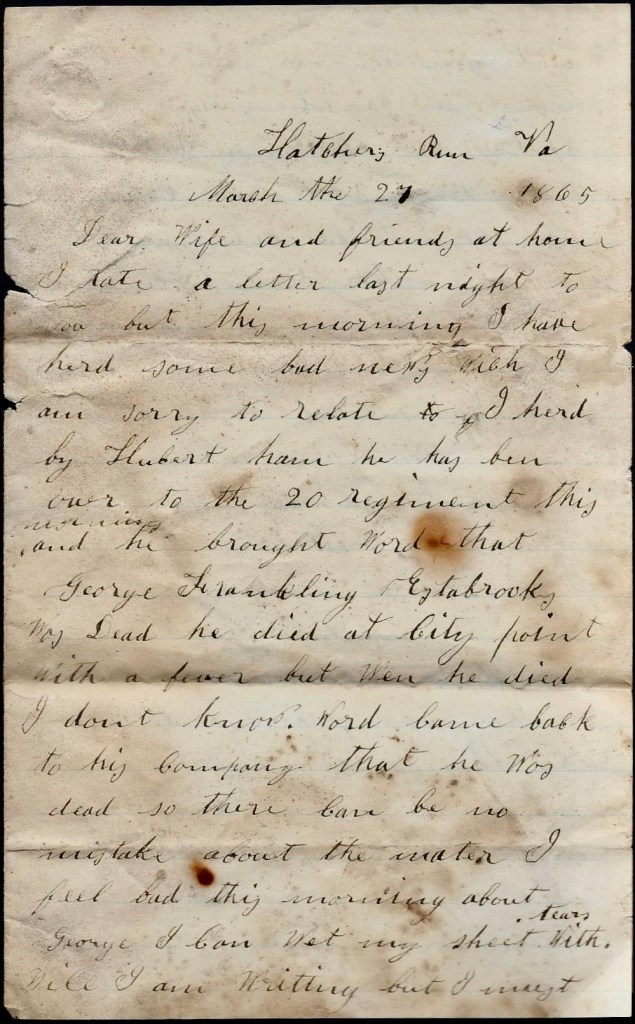 Hatchers Run Va
March the 27 1865
Dear Wife and friends at home
I rote a letter last night to
you but this morning I have
herd some bad news Wich I
am sorry to relate to I herd
by Hubert ham he has ben
over to the 20 regiment this
morning
and he brought Word that
George Frankling Estabrooks
Was Dead he died at City point
With a fever but Wen he died
I dont know. Word Came back
to his Company that he Was
dead so there Can be no
mistake about the mater I
feel bad this morning about
tears
George I Can Wet my sheet With.
Wile I am Writing but I must